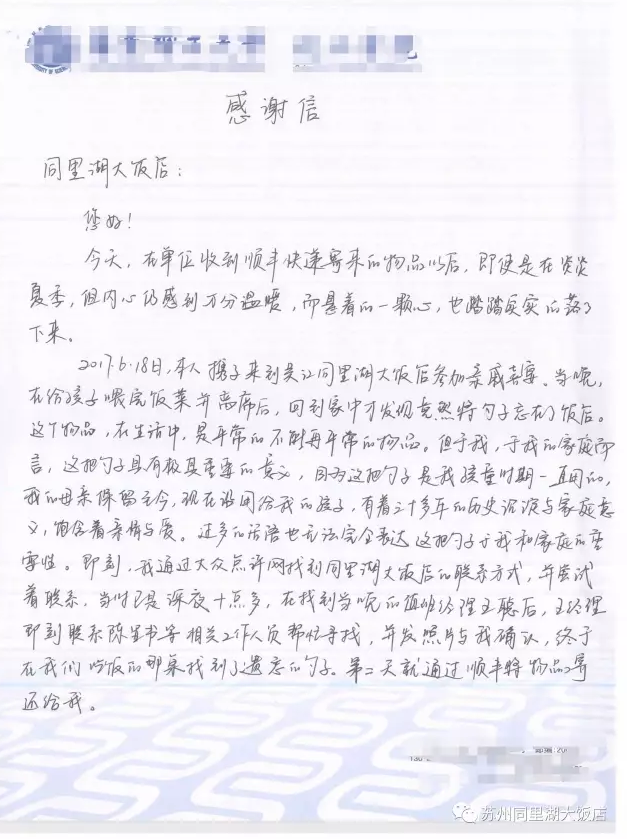 感谢信
同里湖大饭店：
您好！
今天，在单位收到顺丰快递寄来的物品以后，即使是在炎炎
夏季，但内心仍感到万分温暖，而悬着的一颗心，也踏踏实实的落了
下来。
2017.6.18日，本人携子来到吴江同里湖大饭店参加亲戚喜宴。当晚，
在给孩子喂完饭菜并离席后，回到家中才发现竟然将勺子忘在了饭店。
这个物品，在生活中，是平常的不能再平常的物品。但于我，于我的家庭而
言，这把勺子具有极其重要的意义，因为这把勺子是我孩童时期一直用的，
我的母亲保留至今，现在沿用给我的孩子，有着三十多年的历史沉淀与家庭意
义，饱含着亲情与爱。过多的话语也无法完全表达这把勺子于我和家庭的重
要性。即刻，我通过大众点评网找到同里湖大饭店的联系方式，并尝试
着联系，当时已是深夜十点多，在找到当晚的值班经理王聪后，王经理
即刻联系陈呈书等相关工作人员帮忙寻找，并发照片与我确认，终于
在我们吃饭的那桌找到了遗忘的勺子。第二天就通过顺丰将物品寄
还给我。
邮编:20
130
苏州同里湖大饭店